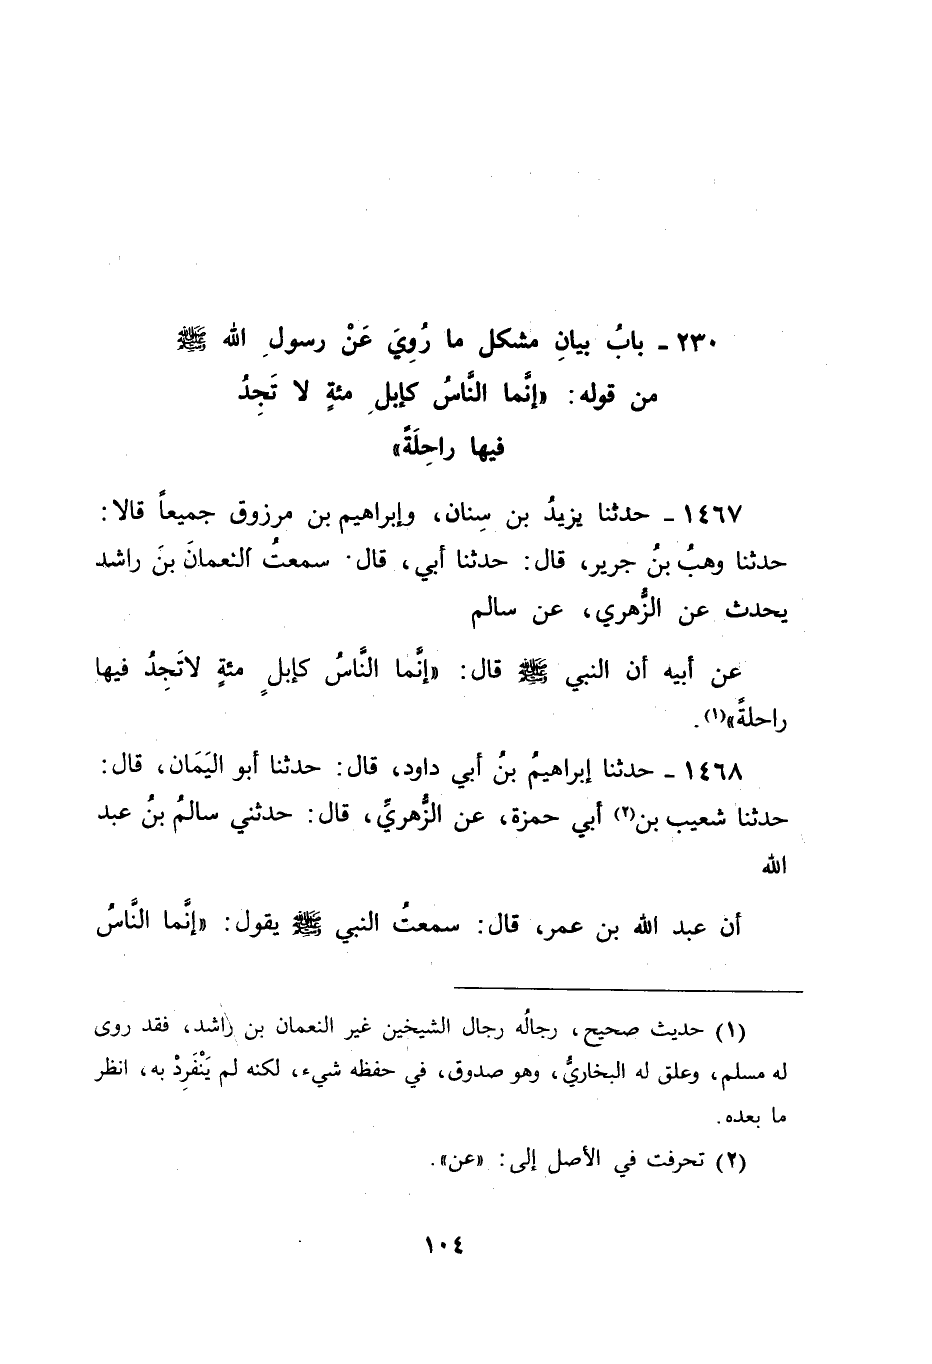 ٢٣٠ - بابُ بيانِ مشكل ما رُوِيَ عَنْ رسولِ الله ﷺ
من قوله: «إنَّما النَّاسُ كإبلِ مئةٍ لا تَجِدُ
فيها راحِلَةً»
١٤٦٧ - حدثنا يزيدُ بن سِنان، وإبراهيم بن مرزوق جميعاً قالا:
حدثنا وهبُ بنُ جرير، قال: حدثنا أبي، قال: سمعتُ النعمانَ بنَ راشد
يحدث عن الزُّهري، عن سالم
عن أبيه أن النبي ﷺ قال: «إنَّما النَّاسُ كإبلٍ مئةٍ لاتَجِدُ فيها
راحلةً»(١).
١٤٦٨ - حدثنا إبراهيمُ بنُ أبي داود، قال: حدثنا أبو اليَمَان، قال:
حدثنا شعيب بن(٢) أبي حمزة، عن الزُّهريِّ، قال: حدثني سالمُ بنُ عبد
الله
أن عبد الله بن عمر، قال: سمعتُ النبي ﷺ يقول: «إنَّما النَّاسُ
(١) حديث صحيح، رجالُه رجال الشيخين غير النعمان بن راشد، فقد روى
له مسلم، وعلق له البخاريُّ، وهو صدوق، في حفظه شيء، لكنه لم يَنْفَرِدْ به، انظر
ما بعده.
(٢) تحرفت في الأصل إلى: «عن».
١٠٤